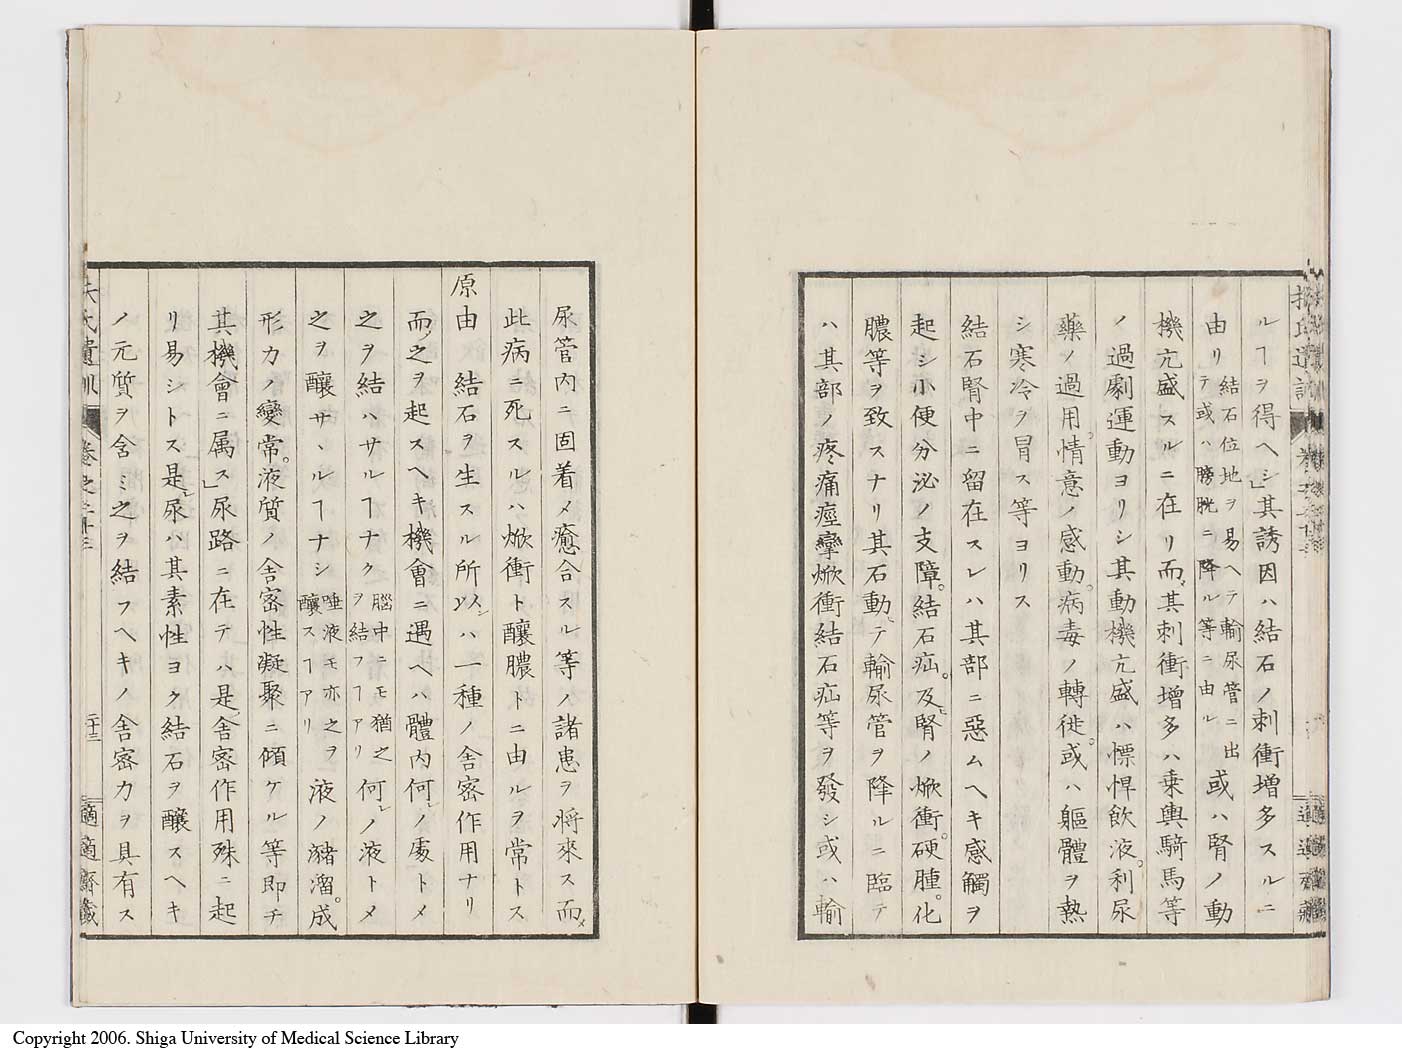 ルヿヲ得ヘシ」其誘因ハ結石ノ刺衝増多スルニ
由リ 結石位地ヲ易ヘテ輸尿管ニ出テ或ハ膀胱ニ降ル等ニ由ル 或ハ腎ノ動
機亢盛スルニ在リ而其刺衝増多ハ乗輿騎馬等
ノ過劇運動ヨリシ其動機亢盛ハ慓悍飲液。利尿
藥ノ過用。情意ノ感動。病毒ノ轉徙。或ハ軀體ヲ熱
シ寒冷ヲ冒ス等ヨリス
結石腎中ニ留在スレハ其部ニ惡ムヘキ感觸ヲ
起シ小便分泌ノ支障。結石疝。及ヒ腎ノ焮衝。硬腫。化
膿等ヲ致スナリ其石動ヒテ輸尿管ヲ降ルニ臨テ
ハ其部ノ疼痛痙攣焮衝結石疝等ヲ發シ或ハ輸
尿管内ニ固着メ癒合スル等ノ諸患ヲ將來ス而メ
此病ニ死スルハ焮衝ト釀膿トニ由ルヲ常トス
原由 結石ヲ生スル所以ンハ一種ノ舎密作用ナリ
而之ヲ起スヘキ機會ニ遇ヘハ體内何レノ處トメ
之ヲ結ハサルヿナク 腦中ニモ猶之ヲ結フヿアリ 何レノ液トメ
之ヲ釀サヽルヿナシ 唾液モ亦之ヲ釀スヿアリ 液ノ瀦溜。成
形力ノ變常。液質ノ舎密性凝聚ニ傾ケル等即チ
其機會ニ属ス」尿路ニ在テハ是ノ舎密作用殊ニ起
リ易シトス是レ尿ハ其素性ヨク結石ヲ釀スヘキ
ノ元質ヲ含ミ之ヲ結フヘキノ舎密力ヲ具有ス
扶氏遺訓 巻之二十三 二十三 適適齋藏
Copyright 2006. Shiga University of Medical Science Library